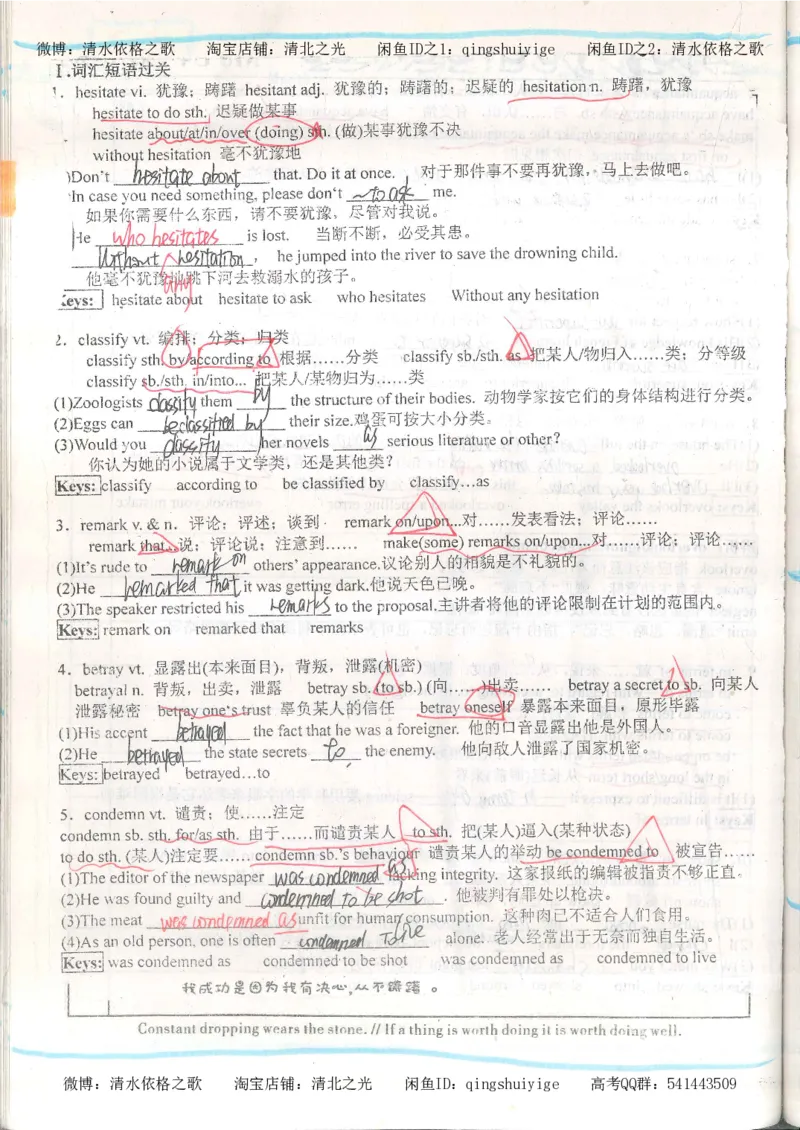 微博：清水依格之歌 淘宝店铺：清北之光 闲鱼ID之1：qingshuiyige 闲鱼ID之2：清水依格之歌
Ⅰ.词汇短语过关
1. hesitate vi. 犹豫；踌躇 hesitant adj. 犹豫的；踌躇的；迟疑的 hesitation n. 踌躇，犹豫
hesitate to do sth. 迟疑做某事
hesitate about/at/in/over (doing) sth. (做)某事犹豫不决
without hesitation 毫不犹豫地
)Don't hesitate about that. Do it at once. 对于那件事不要再犹豫，马上去做吧。
In case you need something, please don't ~to ask me.
如果你需要什么东西，请不要犹豫，尽管对我说。
He who hesitates is lost. 当断不断，必受其患。
Without any hesitation, he jumped into the river to save the drowning child.
他毫不犹豫地跳下河去救溺水的孩子。
Keys: hesitate about hesitate to ask who hesitates Without any hesitation
2. classify vt. 编排；分类；归类
classify sth. by/according to 根据……分类 classify sb./sth. as 把某人/物归入……类；分等级
classify sb./sth. in/into... 把某人/某物归为……类
(1)Zoologists classify them by the structure of their bodies. 动物学家按它们的身体结构进行分类。
(2)Eggs can be classified by their size.鸡蛋可按大小分类。
(3)Would you classify her novels as serious literature or other?
你认为她的小说属于文学类，还是其他类？
Keys: classify according to be classified by classify...as
3. remark v. & n. 评论；评述；谈到 remark on/upon...对……发表看法；评论……
remark that...说；评论说；注意到…… make(some) remarks on/upon...对……评论；评论……
(1)It's rude to remark on others' appearance.议论别人的相貌是不礼貌的。
(2)He remarked that it was getting dark.他说天色已晚。
(3)The speaker restricted his remarks to the proposal.主讲者将他的评论限制在计划的范围内。
Keys: remark on remarked that remarks
4. betray vt. 显露出(本来面目)，背叛，泄露(机密)
betrayal n. 背叛，出卖，泄露 betray sb. (to sb.) (向……)出卖…… betray a secret to sb. 向某人
泄露秘密 betray one's trust 辜负某人的信任 betray oneself 暴露本来面目，原形毕露
(1)His accent betrayed the fact that he was a foreigner. 他的口音显露出他是外国人。
(2)He betrayed the state secrets to the enemy. 他向敌人泄露了国家机密。
Keys: betrayed betrayed...to
5. condemn vt. 谴责；使……注定
condemn sb. sth. for/as sth. 由于……而谴责某人 to sth. 把(某人)逼入(某种状态)
to do sth. (某人)注定要…… condemn sb.'s behaviour 谴责某人的举动 be condemned to 被宣告……
(1)The editor of the newspaper was condemned as lacking integrity. 这家报纸的编辑被指责不够正直。
(2)He was found guilty and condemned to be shot. 他被判有罪处以枪决。
(3)The meat was condemned as unfit for human consumption. 这种肉已不适合人们食用。
(4)As an old person, one is often condemned to live alone. 老人经常出于无奈而独自生活。
Keys: was condemned as condemned to be shot was condemned as condemned to live
我成功是因为我有决心,从不踌躇。
Constant dropping wears the stone. // If a thing is worth doing it is worth doing well.
微博：清水依格之歌 淘宝店铺：清北之光 闲鱼ID：qingshuiyige 高考QQ群：541443509